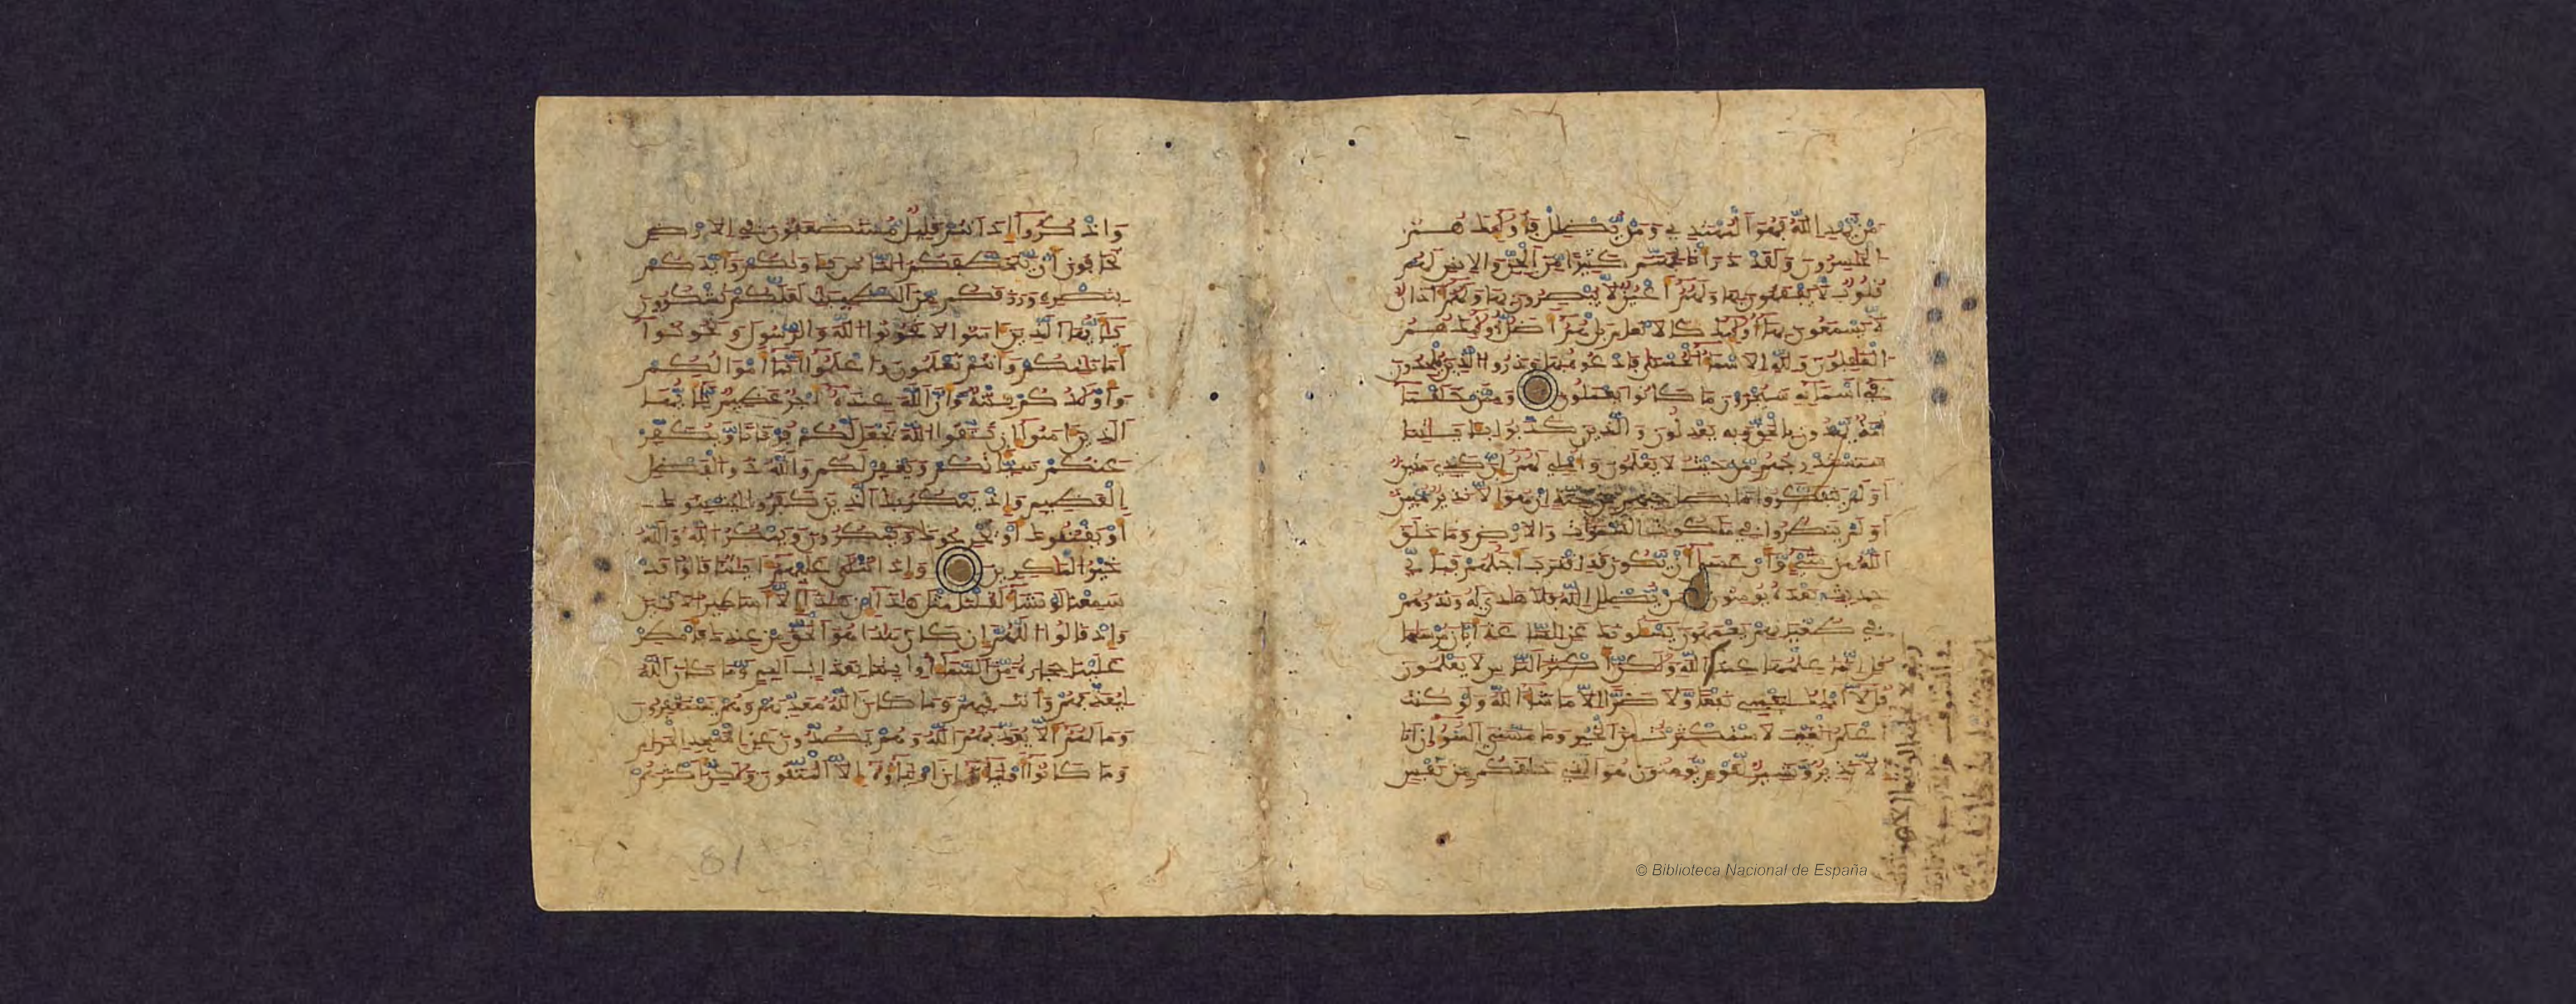 من يهد الله فهو المهتدي ومن يضلل فأولئك هم
الخسرون ولقد ذرأنا لجهنم كثيرا من الجن والإنس لهم
قلوب لا يفقهون بها ولهم أعين لا يبصرون بها ولهم ءاذان
لا يسمعون بها أولئك كالأنعم بل هم أضل أولئك هم
الغفلون ولله الأسماء الحسنى فادعوه بها وذروا الذين يلحدون
في أسمائه سيجزون ما كانوا يعملون وممن خلقنا
أمة يهدون بالحق وبه يعدلون والذين كذبوا بئايتنا
سنستدرجهم من حيث لا يعلمون وأملي لهم إن كيدي متين
أولم يتفكروا ما بصاحبهم من جنة إن هو إلا نذير مبين
أولم ينظروا في ملكوت السموات والأرض وما خلق
الله من شيء وأن عسى أن يكون قد اقترب أجلهم فبأي
حديث بعده يؤمنون من يضلل الله فلا هادي له ونذرهم
في طغينهم يعمهون يسلونك عن الساعة أيان مرسيها
قل إنما علمها عند الله ولكن أكثر الناس لا يعلمون
قل لا أملك لنفسي نفعا ولا ضرا إلا ما شاء الله ولو كنت
أعلم الغيب لاستكثرت من الخير وما مسني السوء إن أنا
إلا نذير وبشير لقوم يؤمنون هو الذي خلقكم من نفس
ربي لا يجليها لوقتها إلا هو ثقلت
في السموات والأرض لا تأتيكم
إلا بغتة يسلونك كأنك
واذكروا إذ أنتم قليل مستضعفون في الأرض
تخافون أن يتخطفكم الناس فئاويكم وأيدكم
بنصره ورزقكم من الطيبت لعلكم تشكرون
يأيها الذين ءامنوا لا تخونوا الله والرسول وتخونوا
أمنتكم وأنتم تعلمون واعلموا أنما أمولكم
وأولدكم فتنة وأن الله عنده أجر عظيم يأيها
الذين ءامنوا إن تتقوا الله يجعل لكم فرقانا ويكفر
عنكم سيئاتكم ويغفر لكم والله ذو الفضل
العظيم وإذ يمكر بك الذين كفروا ليثبتوك
أو يقتلوك أو يخرجوك ويمكرون ويمكر الله والله
خير المكرين وإذا تتلى عليهم ءايتنا قالوا قد
سمعنا لو نشاء لقلنا مثل هذا إن هذا إلا أسطير الأولين
وإذ قالوا اللهم إن كان هذا هو الحق من عندك فأمطر
علينا حجارة من السماء أو ائتنا بعذاب أليم وما كان الله
ليعذبهم وأنت فيهم وما كان الله معذبهم وهم يستغفرون
وما لهم ألا يعذبهم الله وهم يصدون عن المسجد الحرام
وما كانوا أولياءه إن أولياؤه إلا المتقون ولكن أكثرهم
81
© Biblioteca Nacional de España